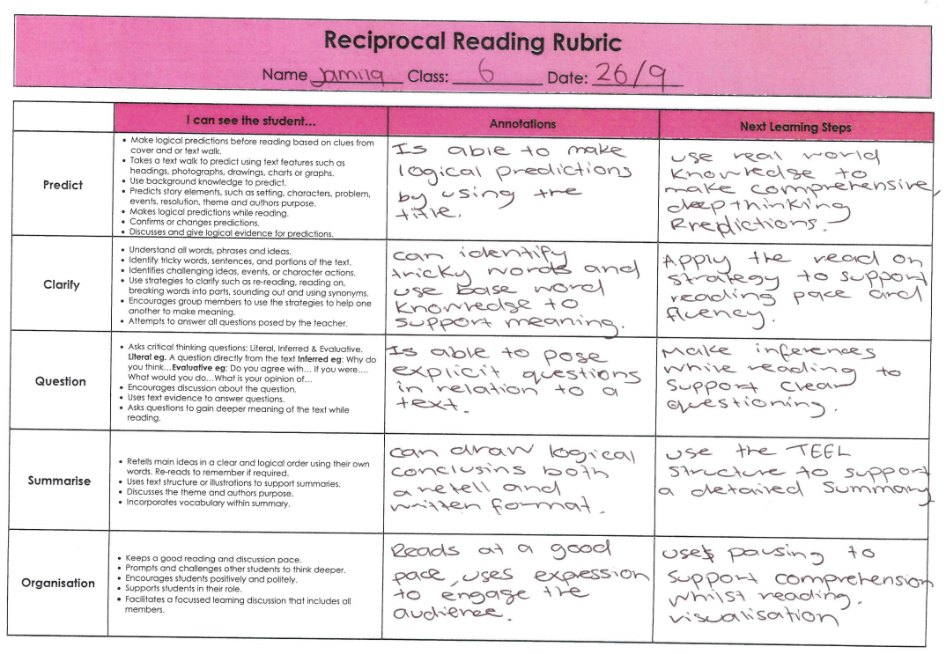 Reciprocal Reading Rubric
Name Jamila Class: 6 Date: 26/9
I can see the student...
Annotations
Next Learning Steps
Predict
• Make logical predictions before reading based on clues from
cover and or text walk.
• Takes a text walk to predict using text features such as
headings, photographs, drawings, charts or graphs.
• Use background knowledge to predict.
• Predicts story elements, such as setting, characters, problem,
events, resolution, theme and authors purpose.
• Makes logical predictions while reading.
• Confirms or changes predictions.
• Discusses and give logical evidence for predictions.
Is able to make
logical predictions
by using the
title.
use real world
knowledge to
make comprehensive,
deep thinking
Predictions.
Clarify
• Understand all words, phrases and ideas.
• Identify tricky words, sentences, and portions of the text.
• Identifies challenging ideas, events, or character actions.
• Use strategies to clarify such as re-reading, reading on,
breaking words into parts, sounding out and using synonyms.
• Encourages group members to use the strategies to help one
another to make meaning.
• Attempts to answer all questions posed by the teacher.
can identify
tricky words and
use base word
knowledge to
support meaning.
Apply the read on
strategy to support
reading pace and
fluency.
Question
• Asks critical thinking questions: Literal, Inferred & Evaluative.
Literal eg. A question directly from the text Inferred eg: Why do
you think...Evaluative eg: Do you agree with... If you were....
What would you do...What is your opinion of...
• Encourages discussion about the question.
• Uses text evidence to answer questions.
• Asks questions to gain deeper meaning of the text while
reading.
Is able to pose
explicit questions
in relation to a
text.
Make inferences
while reading to
support clear
questioning.
Summarise
• Retells main ideas in a clear and logical order using their own
words. Re-reads to remember if required.
• Uses text structure or illustrations to support summaries.
• Discusses the theme and authors purpose.
• Incorporates vocabulary within summary.
can draw logical
conclusins both
a retell and
written format.
use the TEEL
structure to support
a detailed Summary
Organisation
• Keeps a good reading and discussion pace.
• Prompts and challenges other students to think deeper.
• Encourages students positively and politely.
• Supports students in their role.
• Facilitates a focussed learning discussion that includes all
members.
Reads at a good
pace, uses expression
to engage the
audience.
uses pausing to
support comprehension
whilst reading.
visualisation